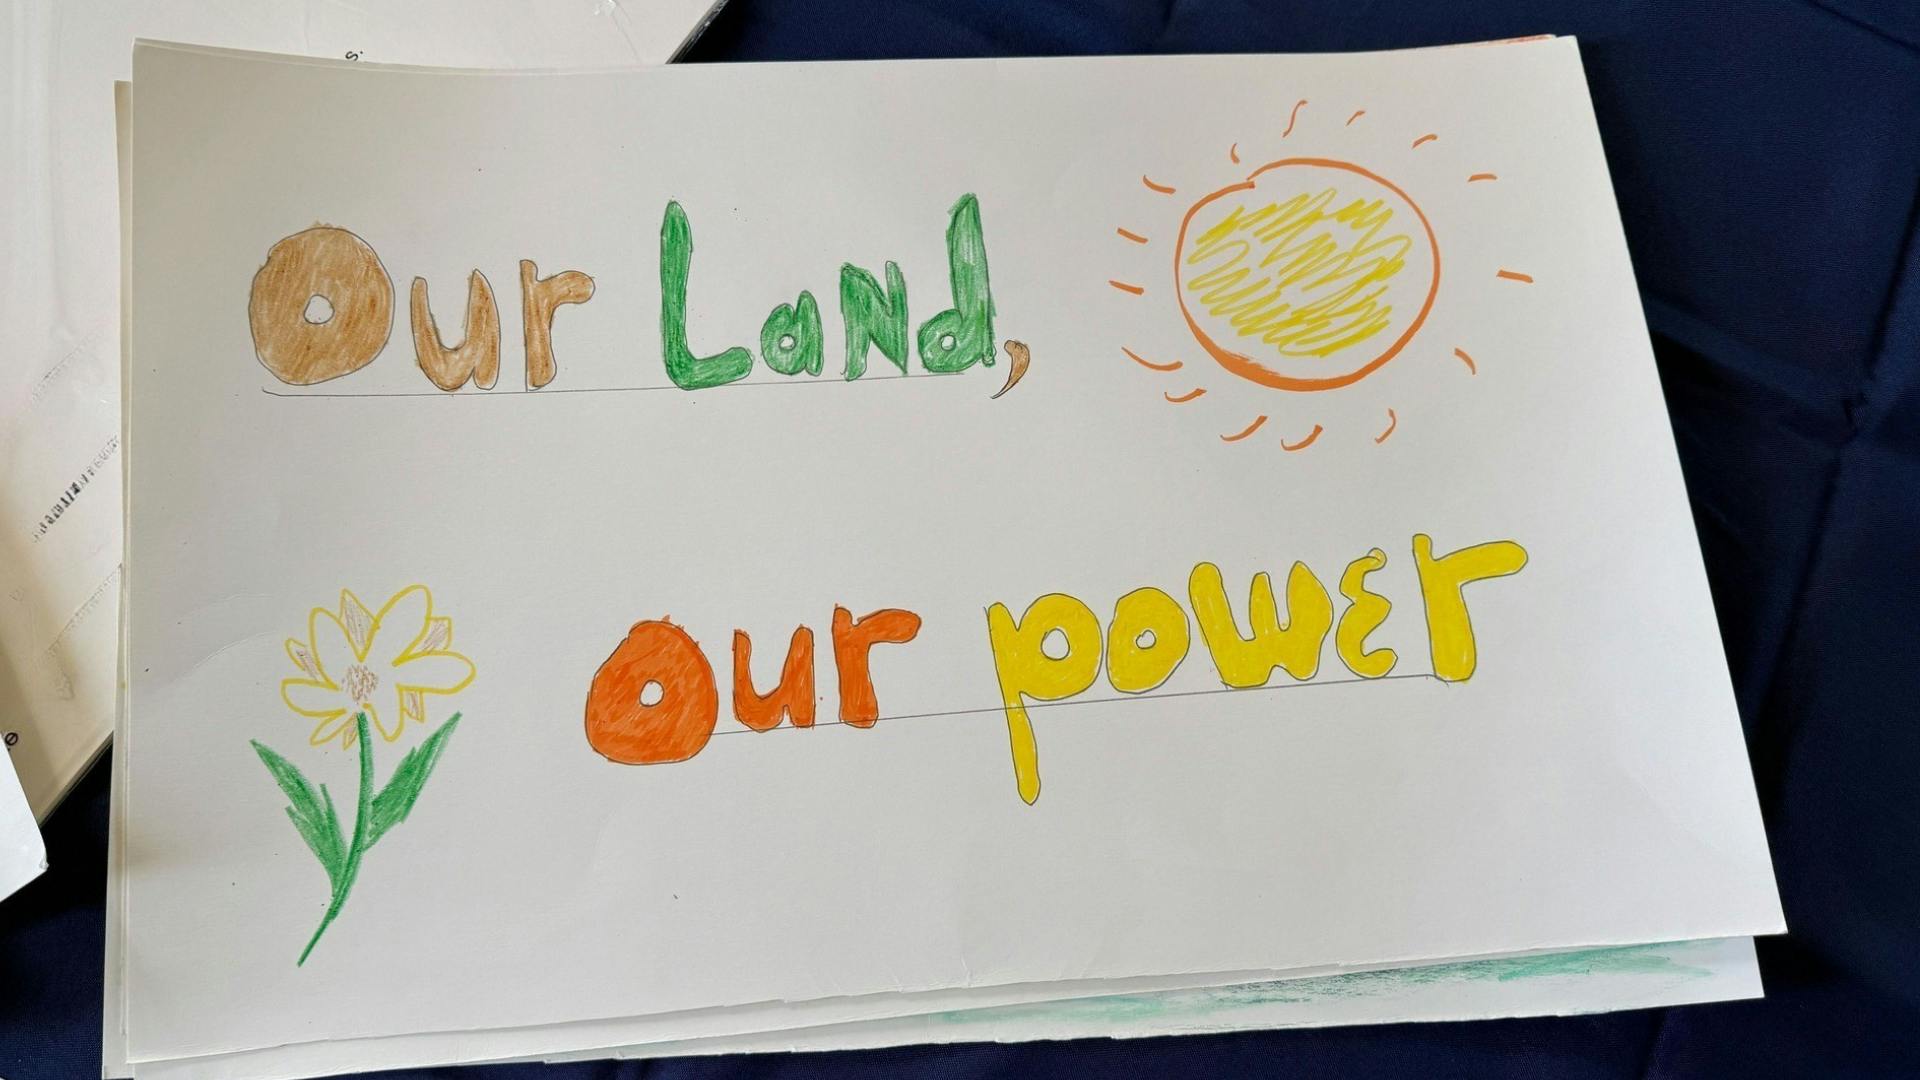 Our LaNd,
our power